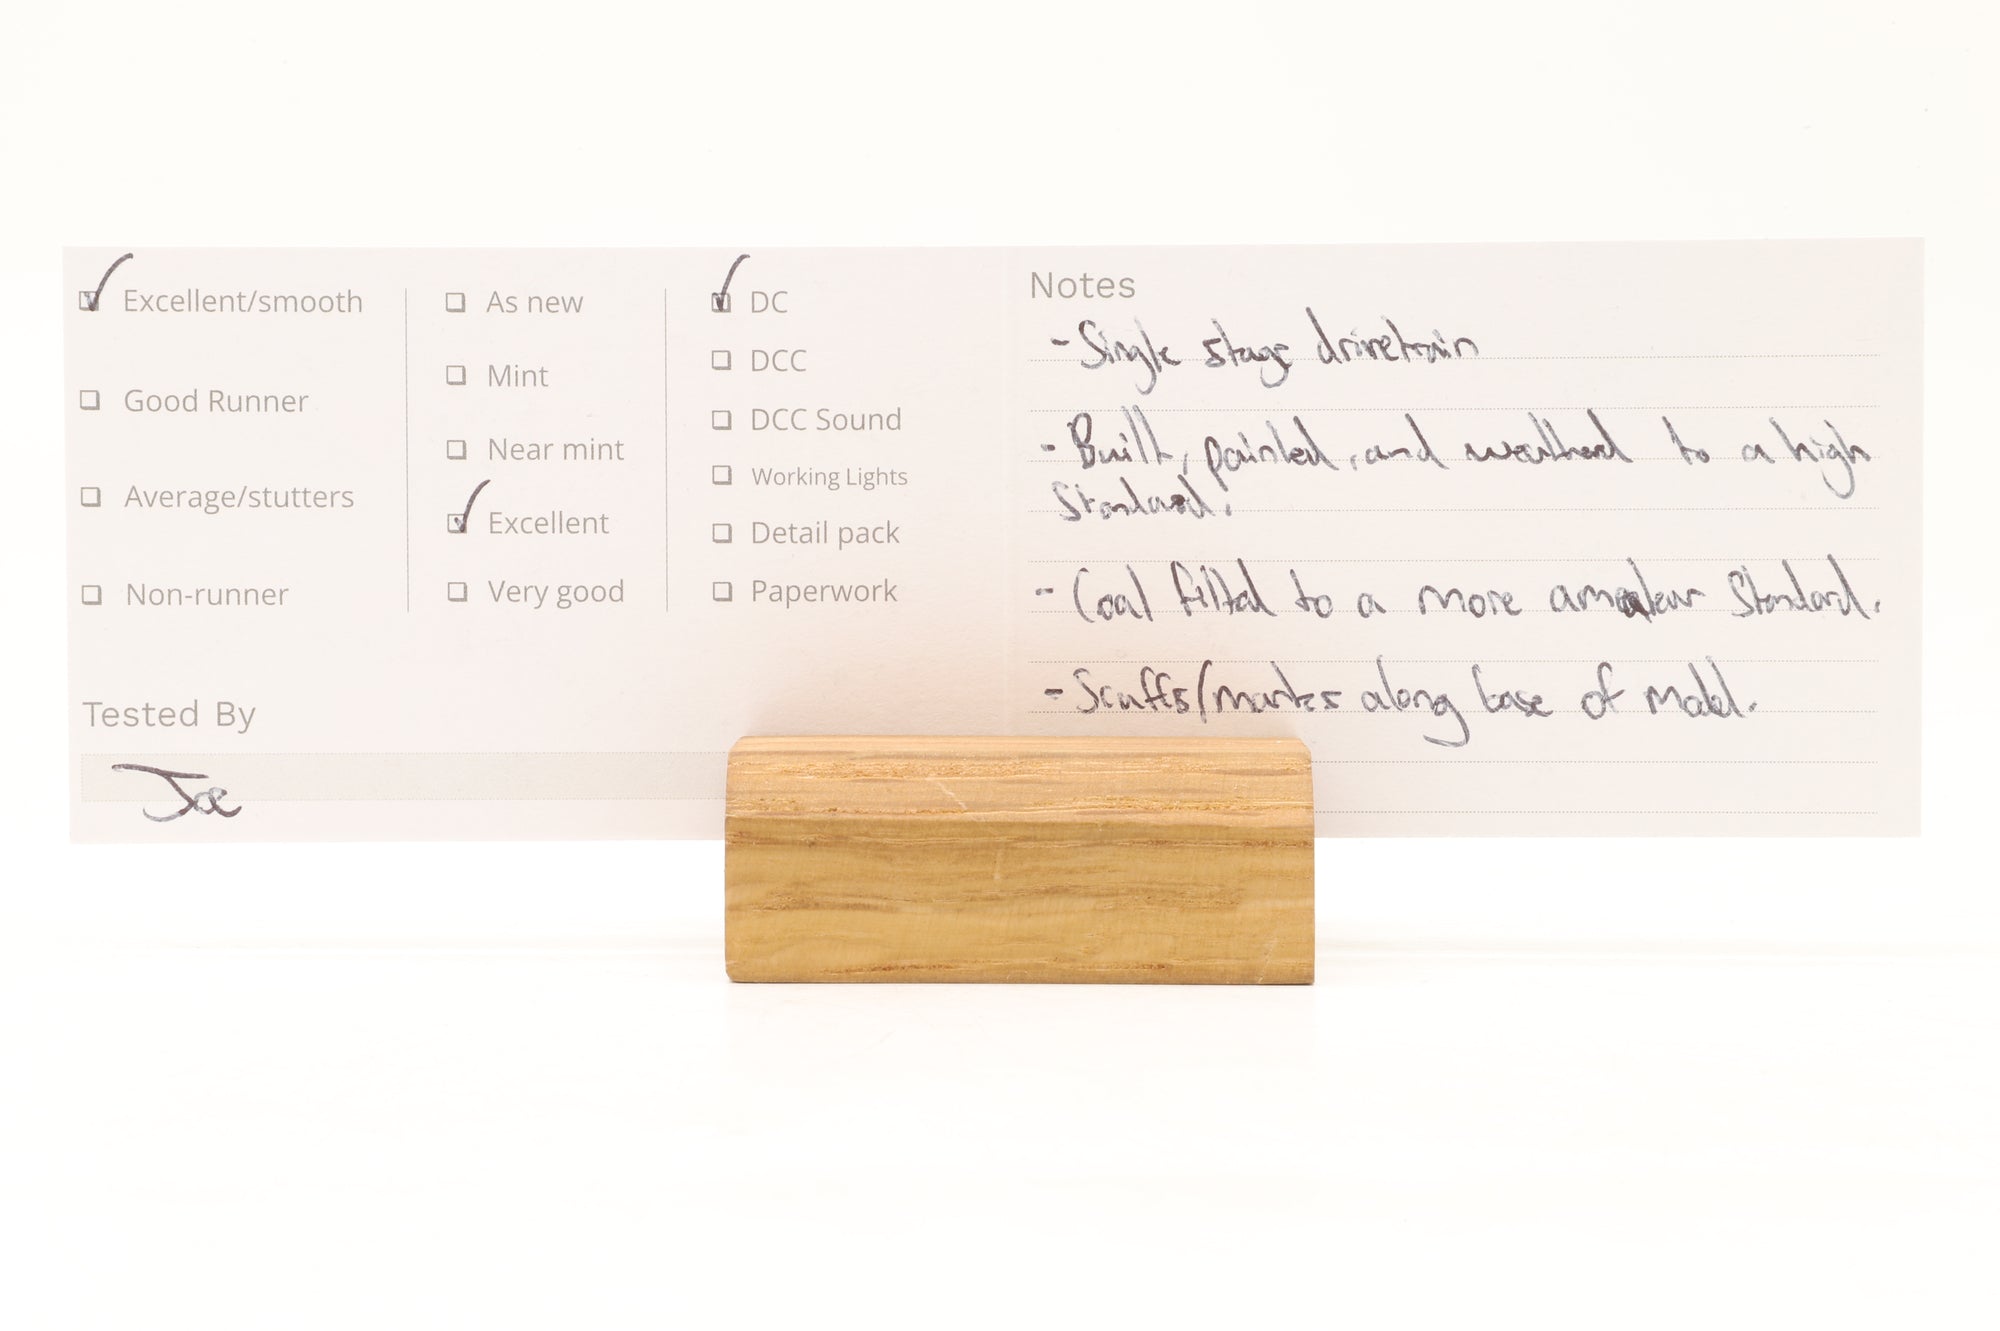 Excellent/smooth
Good Runner
Average/stutters
Non-runner
As new
Mint
Near mint
Excellent
Very good
DC
DCC
DCC Sound
Working Lights
Detail pack
Paperwork
Tested By
Joe
Notes
- Single stage drivetrain
- Built, painted, and weathered to a high
Standard.
- Coal fitted to a more amateur Standard.
- Scuffs/marks along base of model.